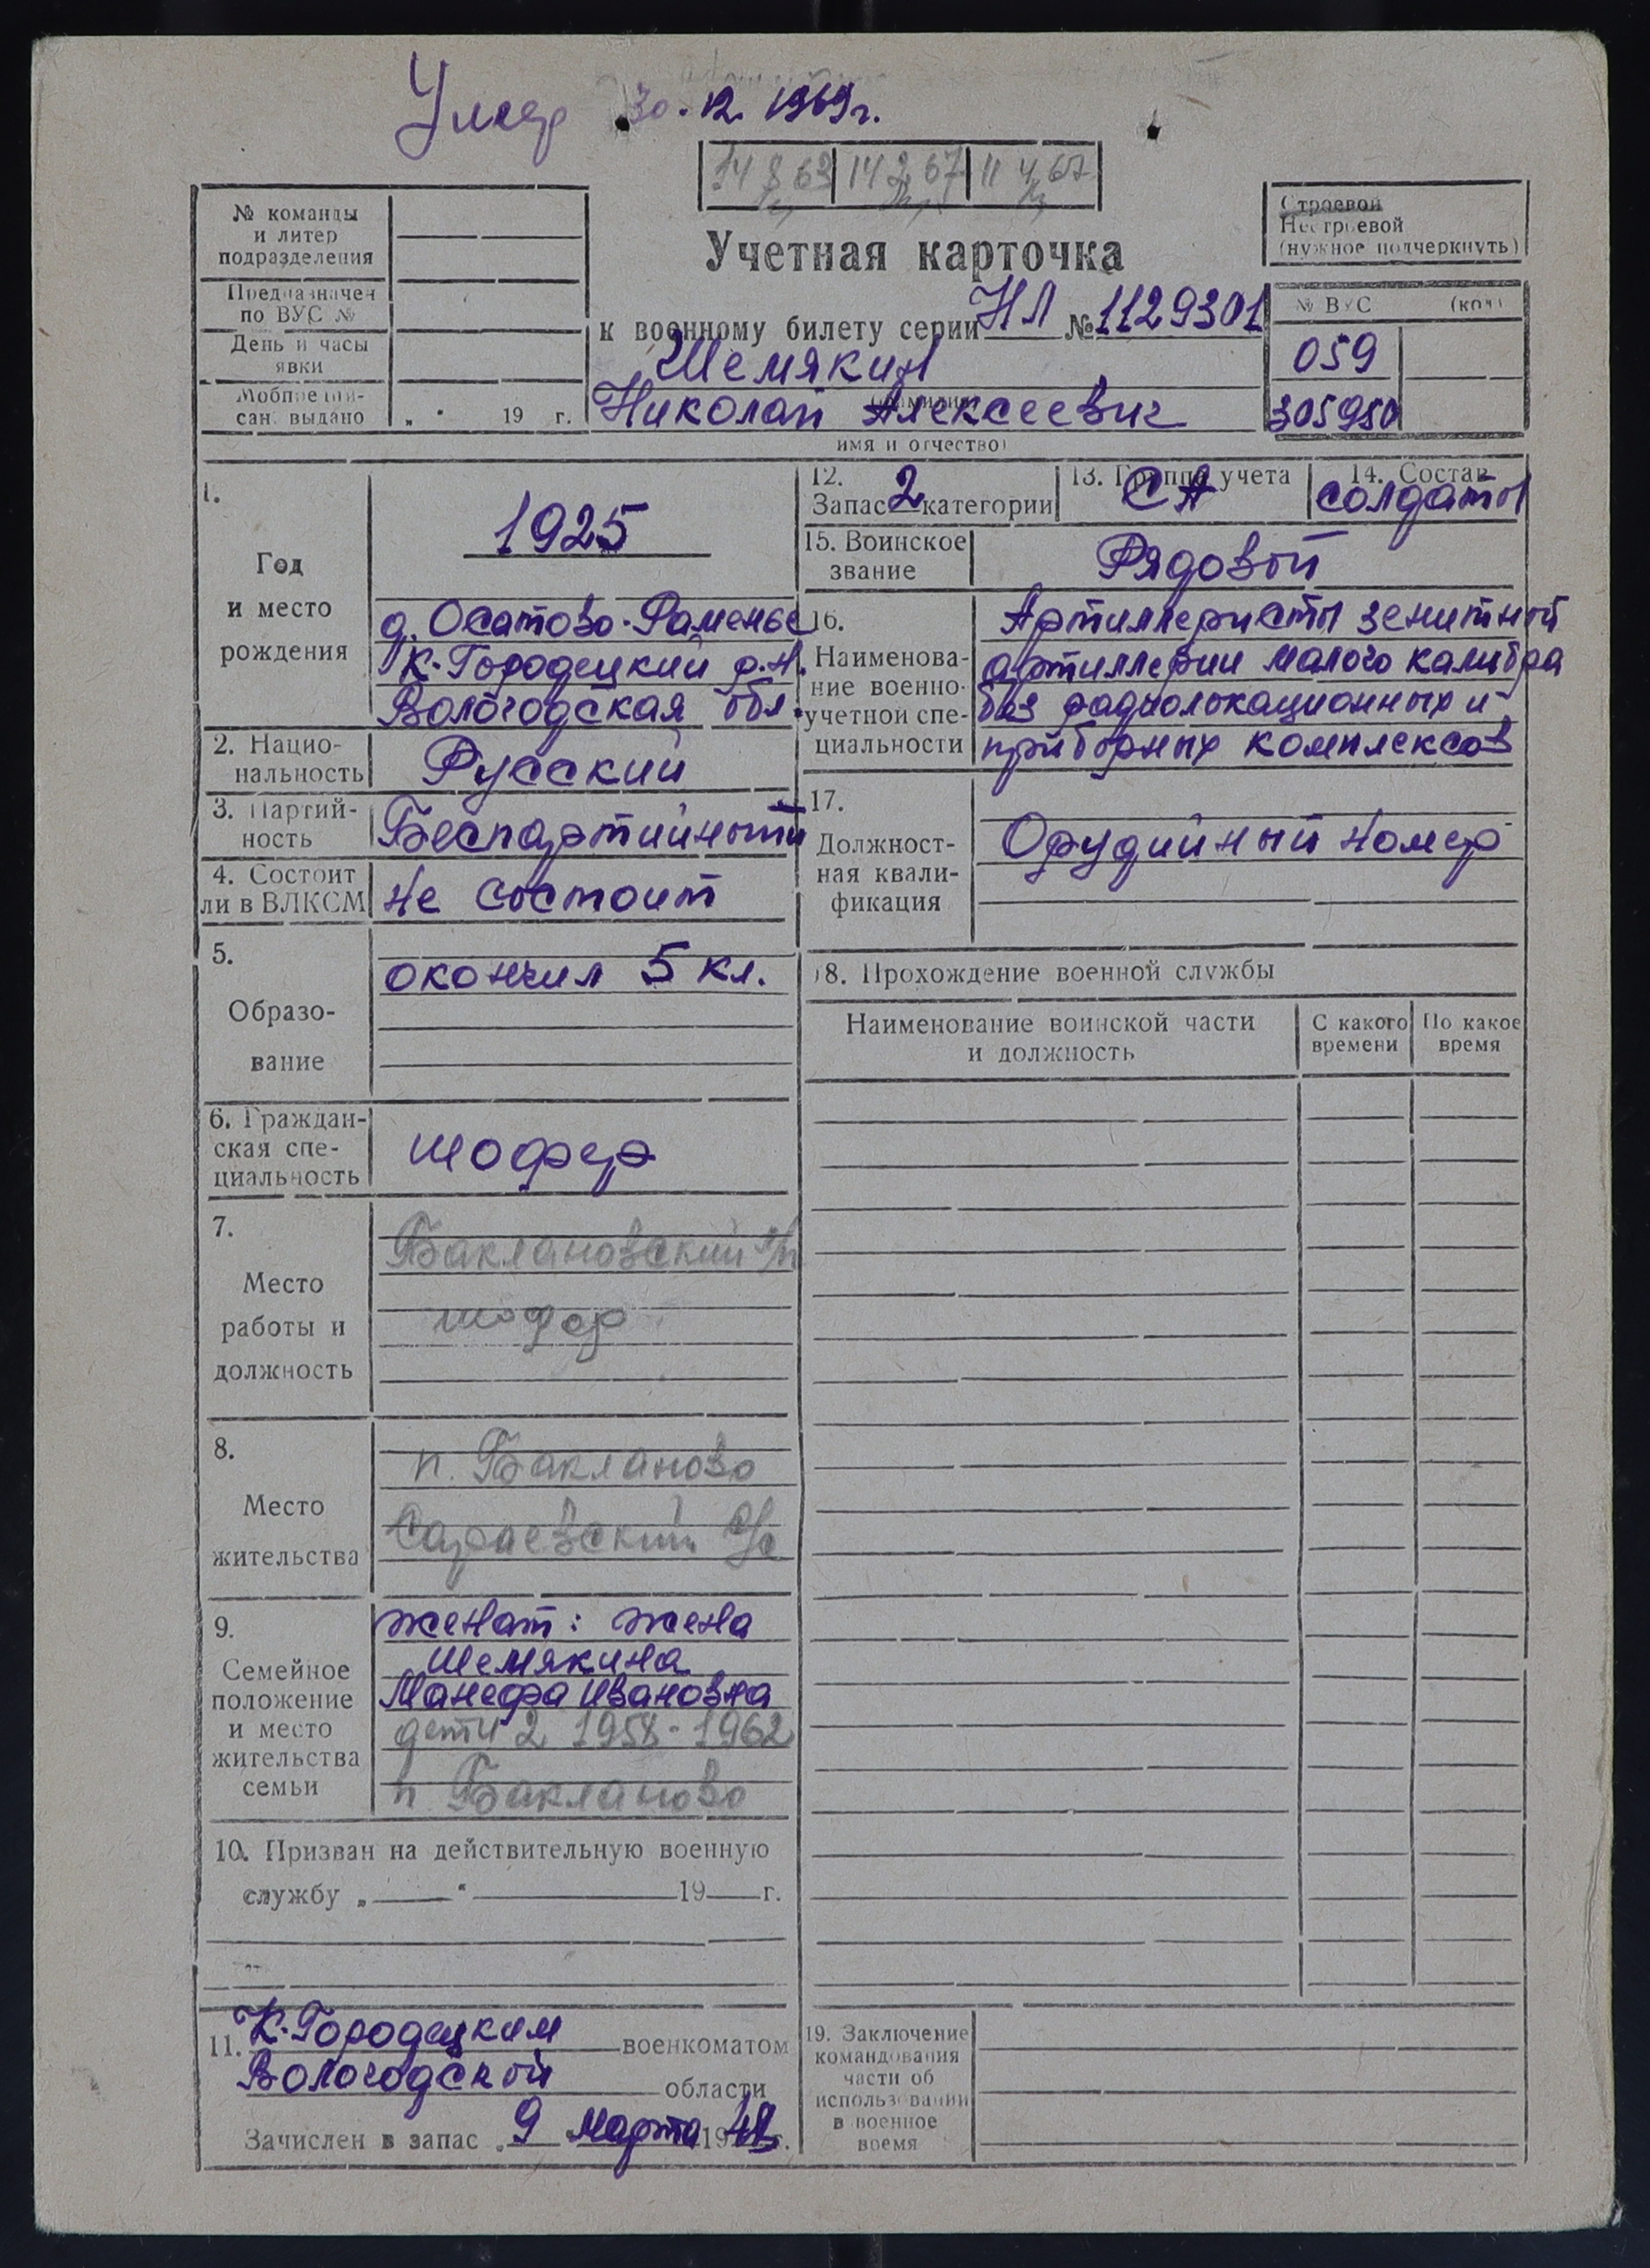 Умер 30.12.1969г.
14 8 63 14 2 67 11 4 67
№ команды
и литер
подразделения
Предназначен
по ВУС №
День и часы
явки
Мобпредпи-
сан. выдано „ “ 19 г.
Строевой
Нестроевой
(нужное подчеркнуть)
Учетная карточка
к военному билету серии НЛ № 1129301
Шемякин
(фамилия)
Николай Алексеевич
имя и отчество)
№ ВУС (код)
059
305950
1.
Год
и место
рождения
1925
д. Осатово-Раменье
К-Городецкий р.н.
Вологодская обл.
2. Нацио-
нальность
Русский
3. Партий-
ность
Беспартийный
4. Состоит
ли в ВЛКСМ
не состоит
5.
Образо-
вание
окончил 5 кл.
6. Граждан-
ская спе-
циальность
шофер
7.
Место
работы и
должность
Баклановский л/п
шофер
8.
Место
жительства
п. Бакланово
Сараевский с/с
9.
Семейное
положение
и место
жительства
семьи
женат: жена
Шемякина
Манефа Ивановна
дети 2 1958-1962
п Бакланово
10. Призван на действительную военную
службу „ “ 19 г.
11. К-Городецким военкоматом
Вологодской области
Зачислен в запас „ 9 “ марта 1948 г.
12.
Запас 2 категории
13. Группа учета
СА
14. Состав
солдаты
15. Воинское
звание
Рядовой
16.
Наименова-
ние военно-
учетной спе-
циальности
Артиллеристы зенитной
артиллерии малого калибра
без радиолокационных и
приборных комплексов
17.
Должност-
ная квали-
фикация
Орудийный номер
18. Прохождение военной службы
Наименование воинской части
и должность
С какого
времени
По какое
время
19. Заключение
командования
части об
использовании
в военное
время